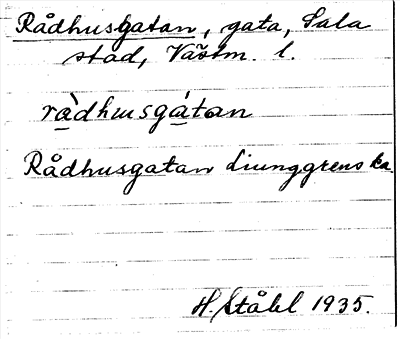 Rådhusgatan, gata, Sala
stad, Västm. l.
ràdhusgátan
Rådhusgatan Ljunggrens ka.
H. Ståhl 1935.